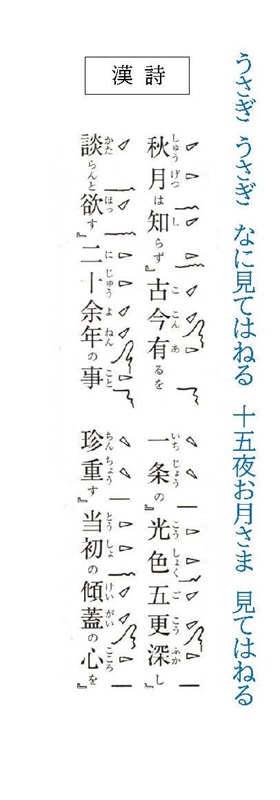 うさぎ うさぎ なに見てはねる 十五夜お月さま 見てはねる
漢詩
秋月は知らず『古今有るを
一条の『光色五更深し
談らんと欲す『二十余年の事
珍重す『当初の傾蓋の心を『